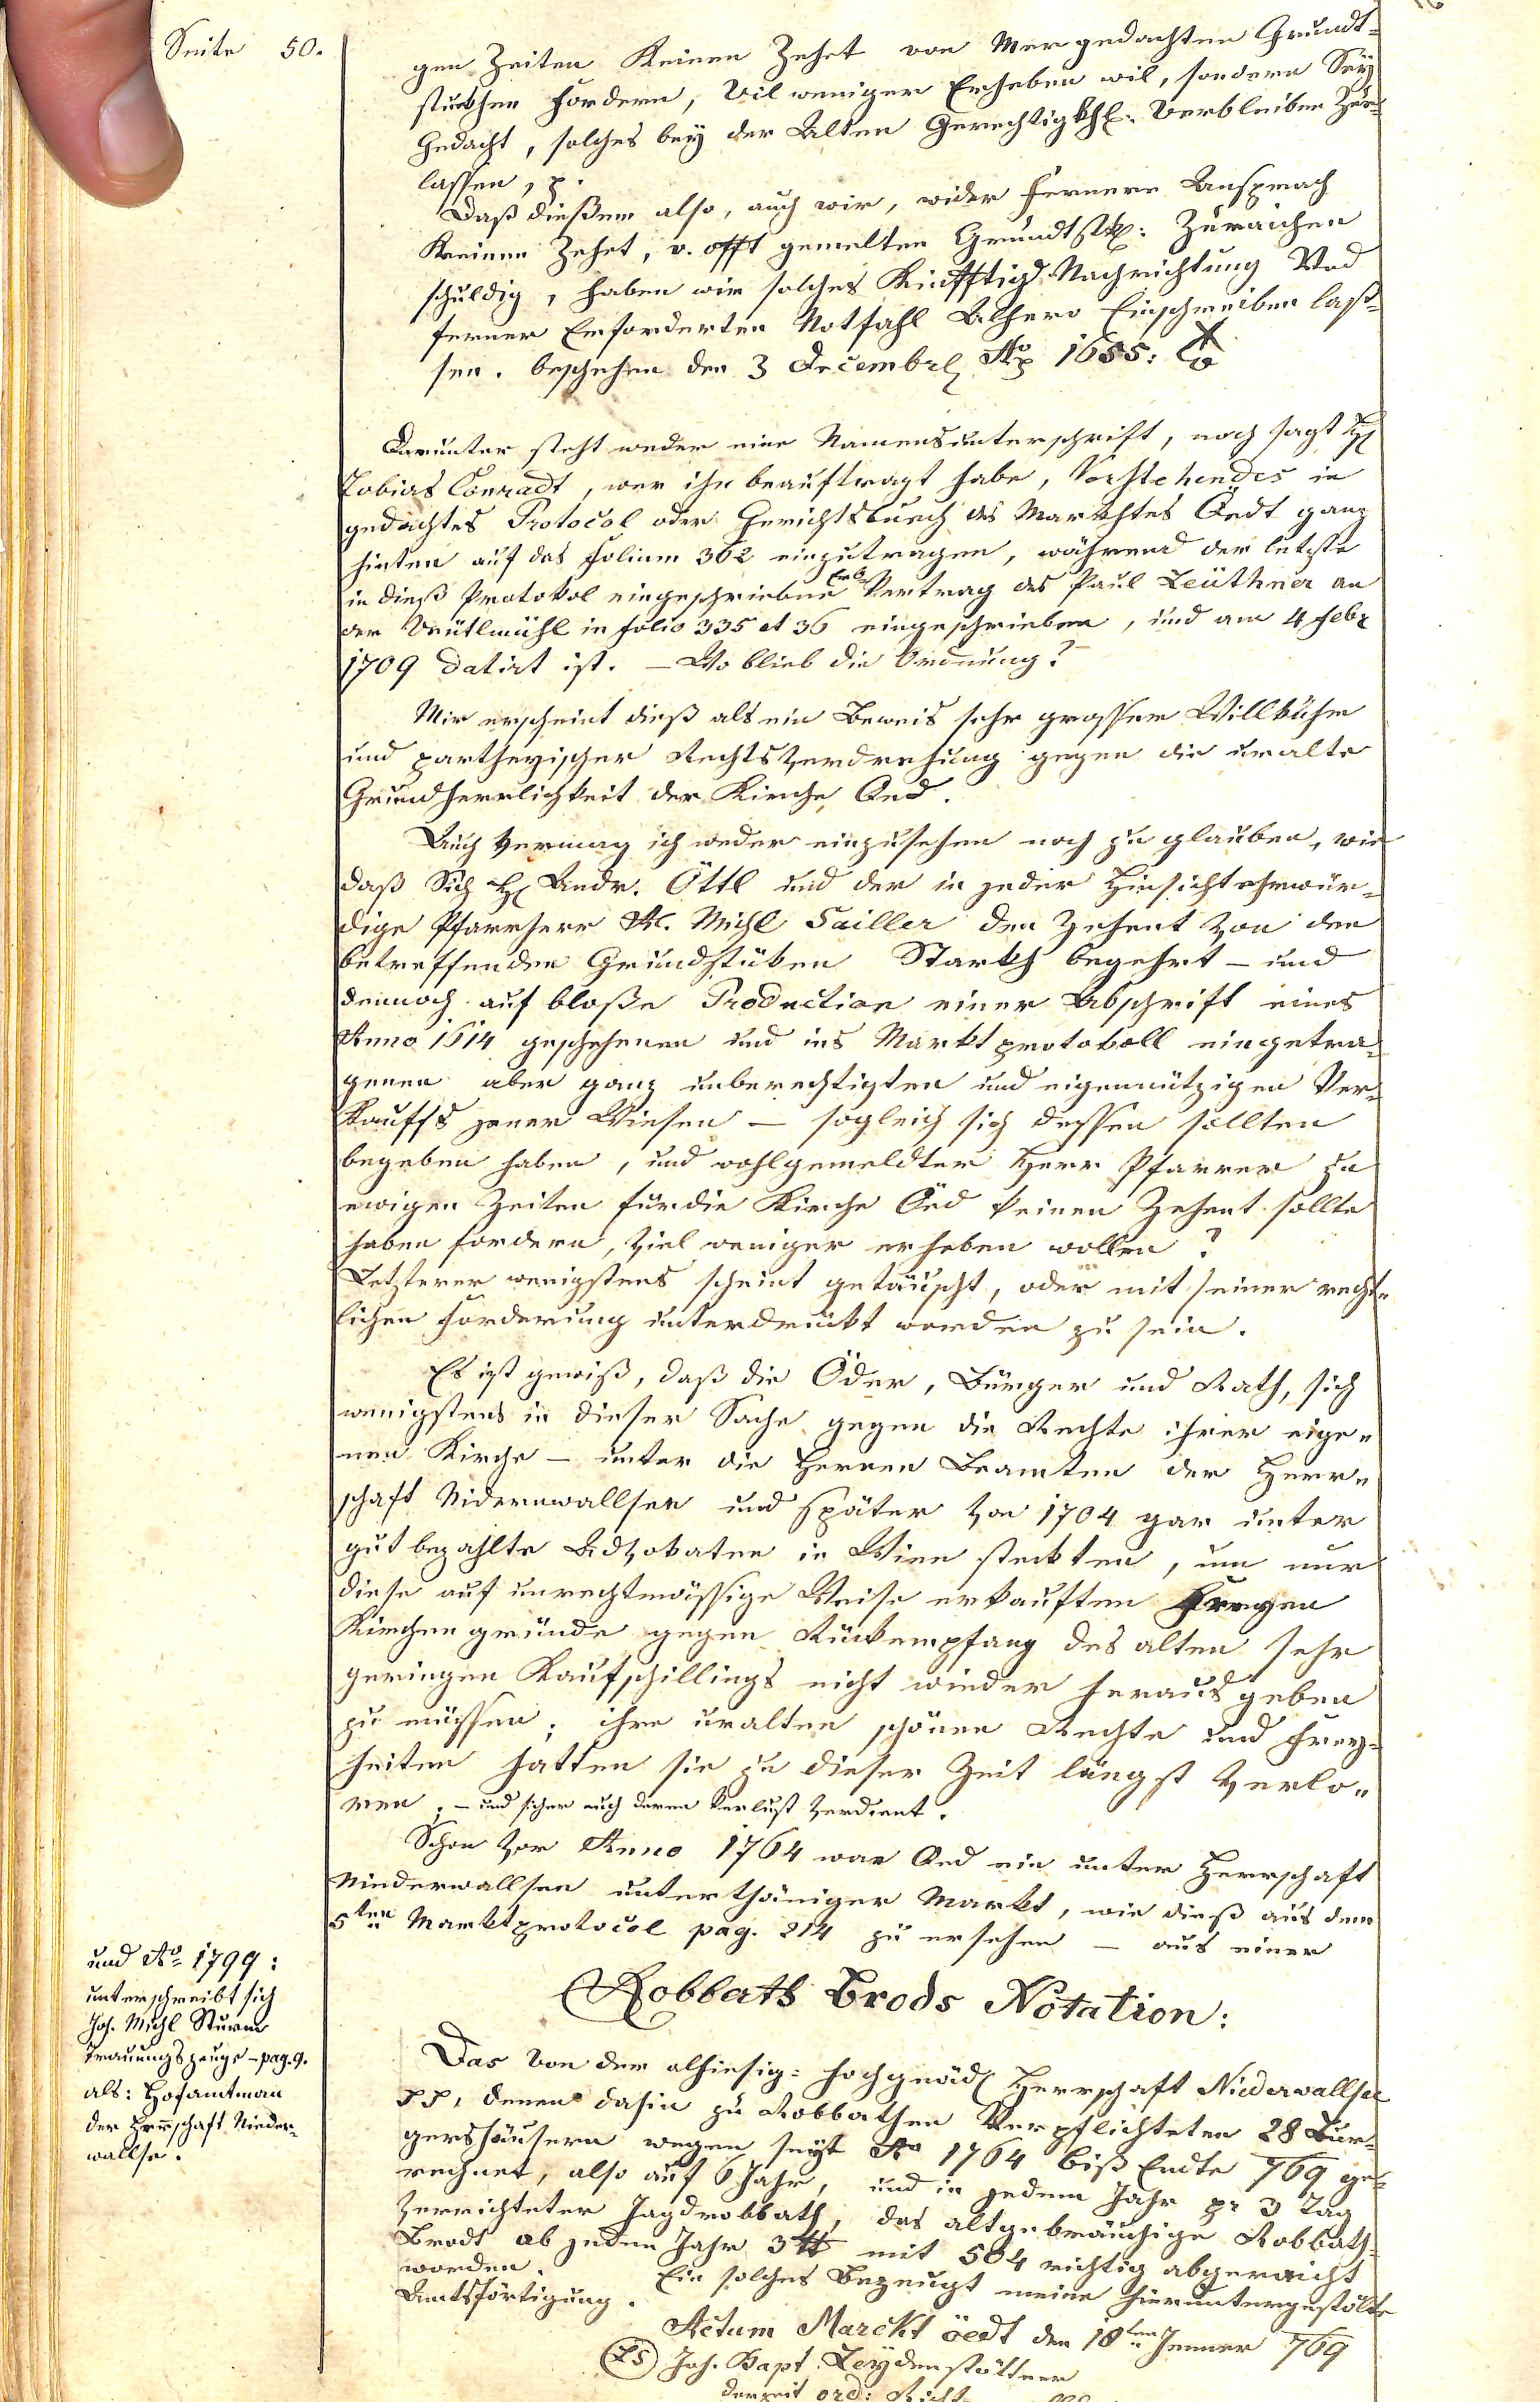 Seite 50.
gen Zeiten Keinen Zehet von Mer gedachten Grundt-
stuckhen fordern, Vil weniger Erheben wil, sondern Sey
Gedacht, solches bey der Alten Gerechtigkh: Verbleiben Zue
lassen, p.
Daß dießem also, auch wir, wider fernern Ansprach
Keinen Zehet, v. offt gemelten Grundtstkh: Zuraichen
schuldig, haben wir solches Kinfftig Nachrichtung Vnd
ferner Erforderten Notfahl Alhero Einschreiben laß-
sen. beschehen den 3 Decembrl Ao 1655:
Darunter steht weder eine Namensunterschrift, noch sagt H
Tobias Conradt, wer ihn beauftragt habe, Vorstehendes in
gedachtes Protocol oder Gerichtsbuech des Markhtes Oedt ganz
hinten auf das Folium 362 einzutragen, während der letzte
in dieß Protokol eingeschriebne Erb Vertrag des Paul Leüthner an
der in folio 335 et 36 eingeschrieben, und am 4 Febr
1709 datirt ist. – Wo blieb die Ordnung?
Mir erscheint dieß als ein Beweis sehr grosser Willkühr
und partheyischer Rechtsverdrehung gegen die uralte
Grundherrlichkeit der Kirche Oed.
Auch vermag ich weder einzusehen noch zu glauben, wie
daß Sich H Andr. Öttl und der in jeder Hinsicht ehrwür-
dige Pfarrherr M. Michl Sailler den Zehent von den
betreffenden Grundstüken Starkh begehrt – und
dennoch auf bloße Production einer Abschrift eines
Anno 1614 geschehenen und ins Marktprotokoll eingetra-
genen aber ganz unberechtigten und eigennützigen Ver-
kauffs jener Wiesen – sogleich sich dessen sollten
begeben haben, und wohlgemeldter Herr Pfarrer zu
ewigen Zeiten für die Kirche Öed keinen Zehent sollte
haben fordern, viel weniger erheben wollen?
Letzterer wenigstens scheint getäuscht, oder mit seiner recht-
lichen Forderung unterdrückt worden zu sein.
Es ist gewiß, daß die Öder, Bürger und Rath, sich
wenigstens in dieser Sache gegen die Rechte ihrer eige-
nen Kirche – unter die Herren Beamten der Herr-
schaft Niderwallsee und später von 1704 gar unter
gut bezahlte Advokaten in Wien steckten, um nur
diese auf unrechtmässige Weise erkauften Freyen
Kirchengründe gegen Rückempfang des alten sehr
geringen Kaufschillings nicht wieder heraus geben
zu müssen; ihre uralten schönen Rechte und Frey-
heiten hatten sie zu dieser Zeit längst verlo-
ren; – und sicher auch deren Verlust verdient.
Schon vor Anno 1764 war Oed ein unter Herrschaft
Niederwallsee unterthäniger Markt, wie dieß aus dem
5ten Marktprotocol pag. 214 zu ersehen – aus einer
Robbath Brods Notation:
und Ao 1799:
unterschreibt sich
Joh. Michl Sturm
Trauungszeuge – pag. 9.
als: Hofamtman
der Herrschaft Nieder-
wallse.
Das von der alhiesig: hochgnäd Herrschaft Niederwallsee
pp, denen dahin zu Robbathen Verpflichteten 28 Bur-
gershäusern wegen seyt Ao 1764 biß Endte 769 ge-
rechnet, also auf 6 Jahr, und in jedem Jahr pr 3 Tag
verrichteter Jagdrobbath, das altgebräuchige Robbath-
Brodt ab jeden Jahr 3 ℔ mit 504 richtig abgereicht
worden. Ein solches Bezeugt meine hieruntergestölte
Amtsförtigung.
Actum Marckt öedt den 18ten Jenner 769
LS Joh. Bapt. Leydenstöttner
derzeit ord: